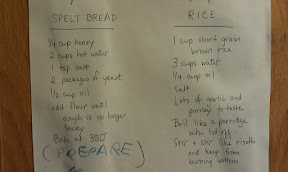 SPELT BREAD
1/4 cup honey
2 cups hot water
1 tsp salt
2 packages of yeast
1/2 cup oil
add flour until
dough is no longer
sticky
Bake at 350°
(PREPARE)
RICE
1 cup short grain
brown rice
3 cups water
1/4 cup oil
Salt
Lots of garlic and
parsley to taste
Boil like a porridge
with lid off
Stir + stir like risotto
and keep from
burning bottom